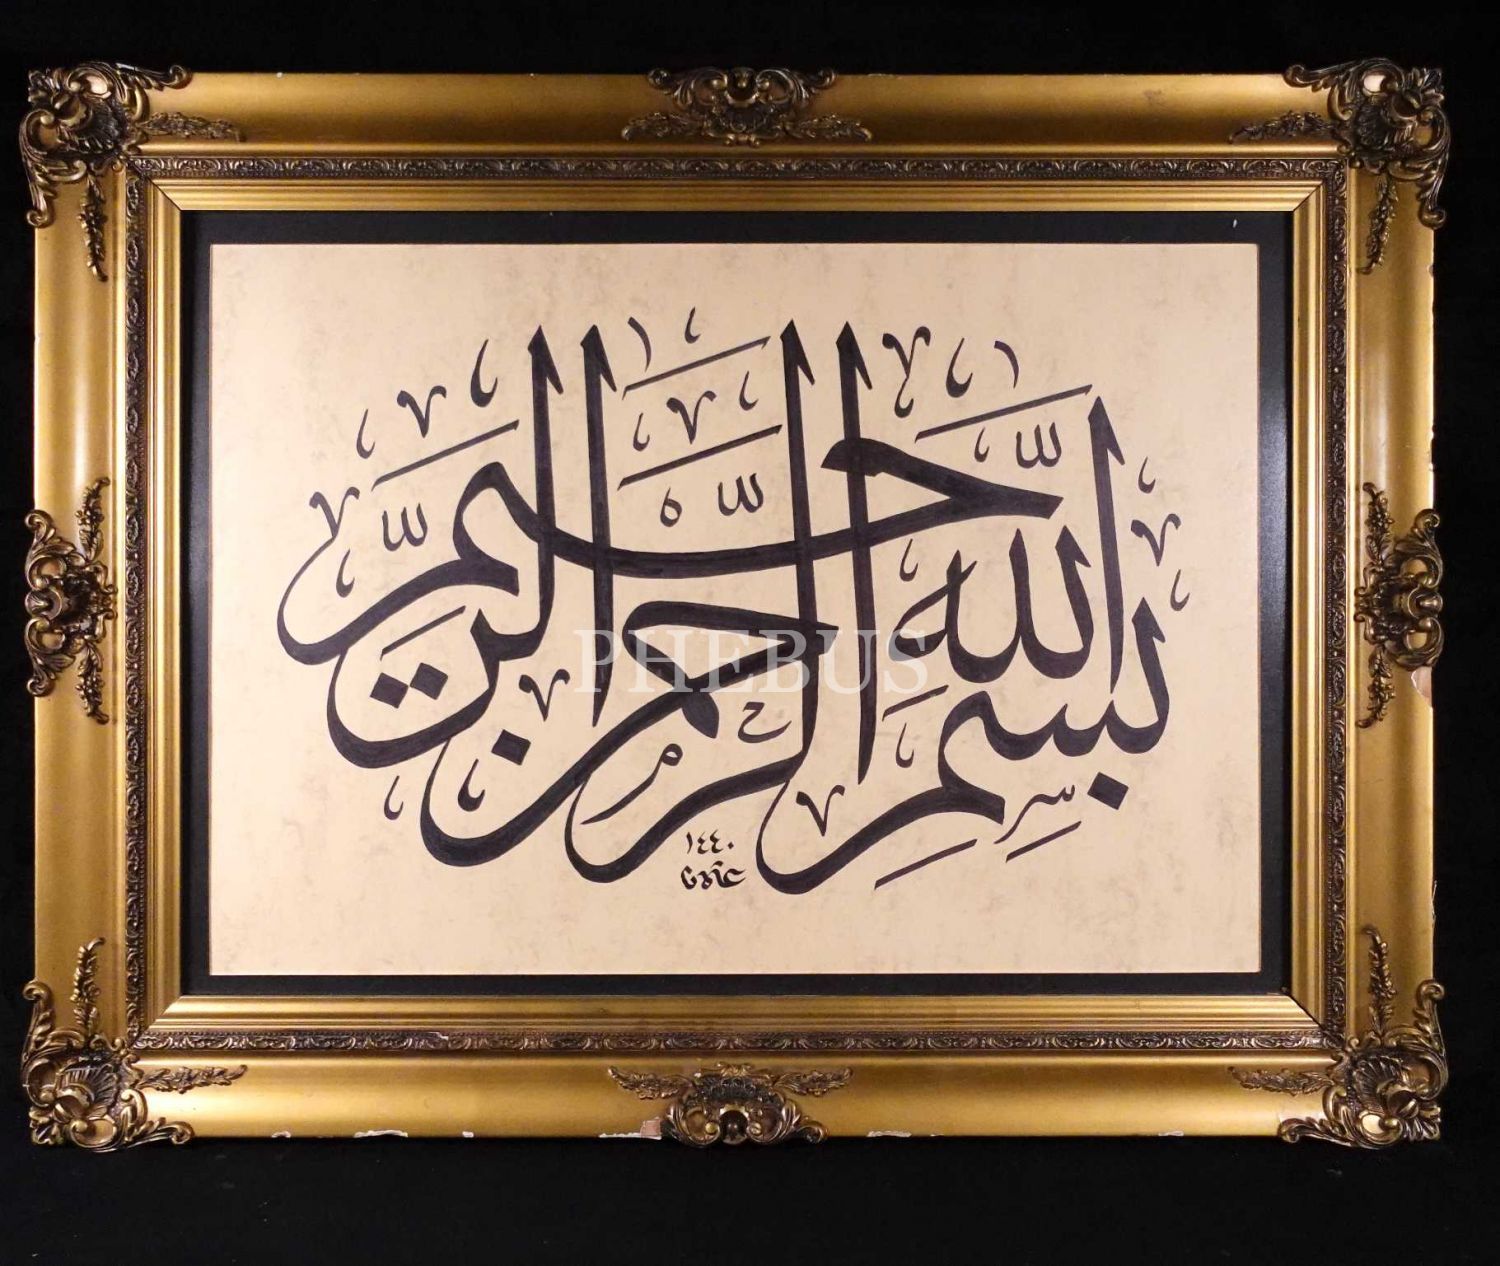 بسم الله الرحمن الرحيم
١٤٤٠
PHEBUS